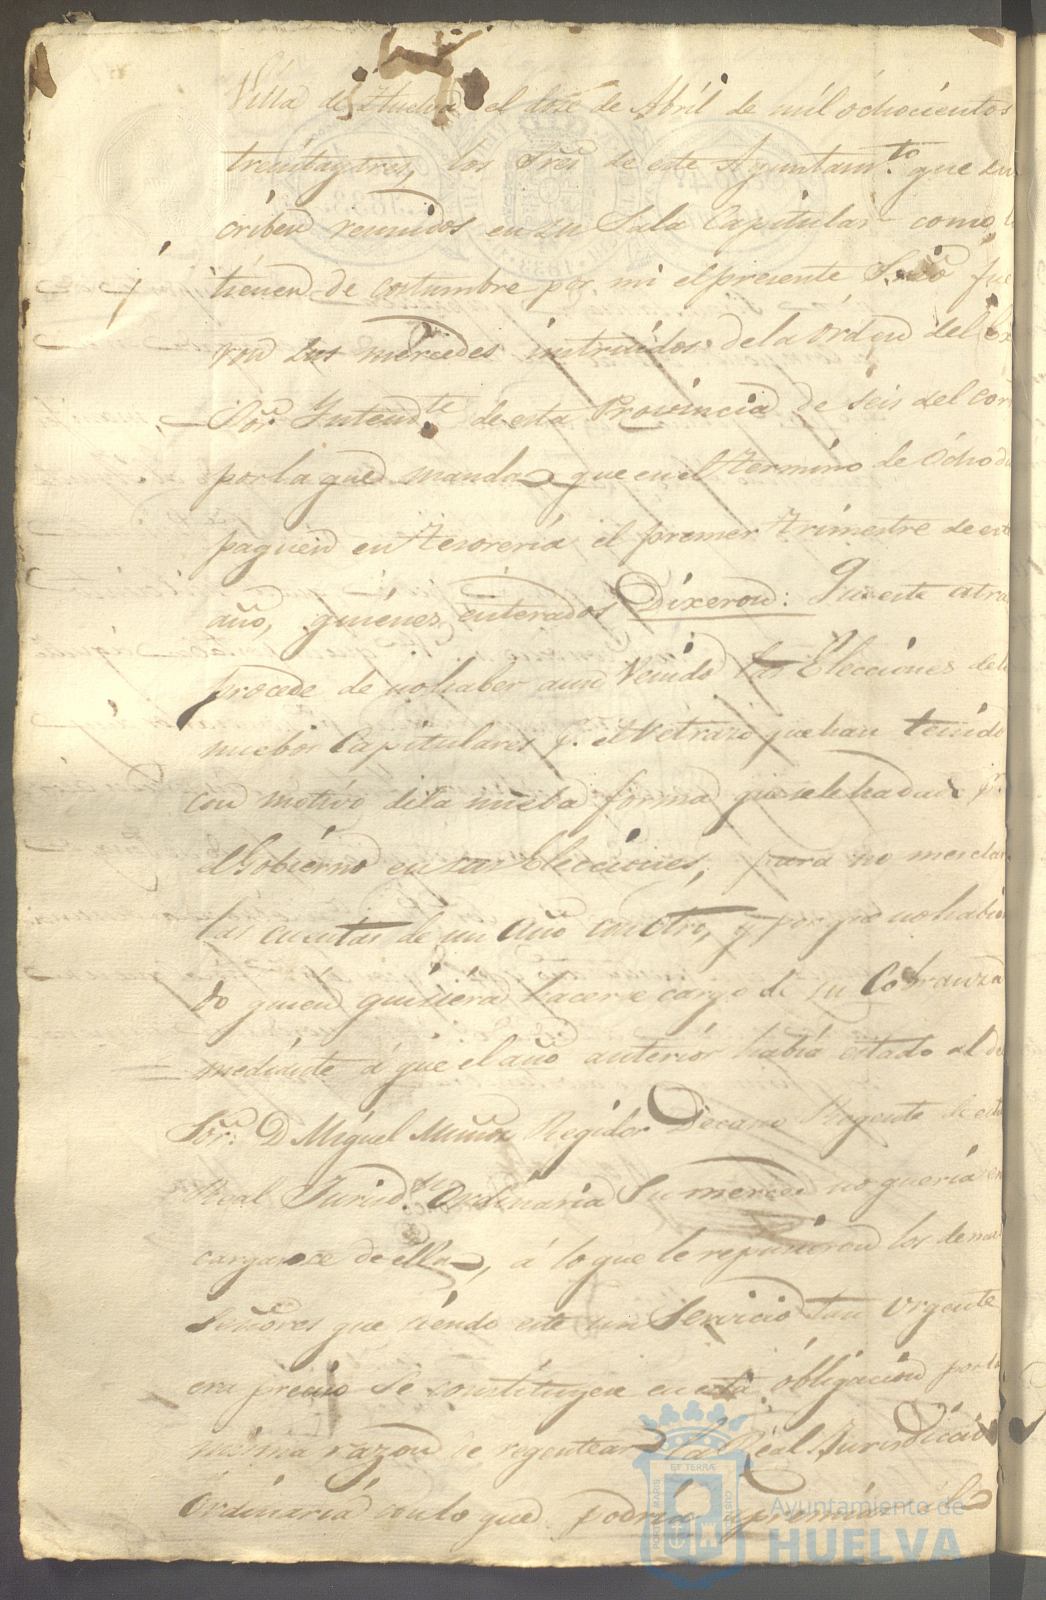 Villa de Huelva el dose de Abril de mil ochocientos
treintaytres, los Sres de este Ayuntam.to que sus
criben reunidos en su Sala Capitular como lo
tienen de costumbre por mi el presente S.no fue
ron sus mercedes instruidos de la Orden del
Sor. Intend.te de esta Provincia de seis del corr
por la que manda que en el termino de Ocho di
paguen en Tesoreria el primer trimestre de este
año, quienes enterados Dixeron: Que este atra
procede de no haber aun Venido las Elecciones de lo
nuebos Capitulares p.r el Retraso que han tenido
con motivo de la nueba forma que se le ha dado p.r
el Gobierno en sus Elecciones, para no mesclar
las cuentas de un año con otro, y por que no habien
do quien quisiera hacerse cargo de su Cobranza
mediante á que el año anterior habia estado al de
Sor. D Miguel Muñoz Regidor Decano Regente de esta
Real Jurisd.on Ordinaria Su merced no queria en
cargarsce de ella, á lo que le repusieron los demas
Señores que siendo este un Servicio tan Urgente
era preciso se constituyese en esta obligacion por la
misma razon de regentear la Real Jurisdiccion
Ordinaria con lo que podria apremiar
PORTUS MARIS ET TERRÆ CUSTODIA
Ayuntamiento de
HUELVA